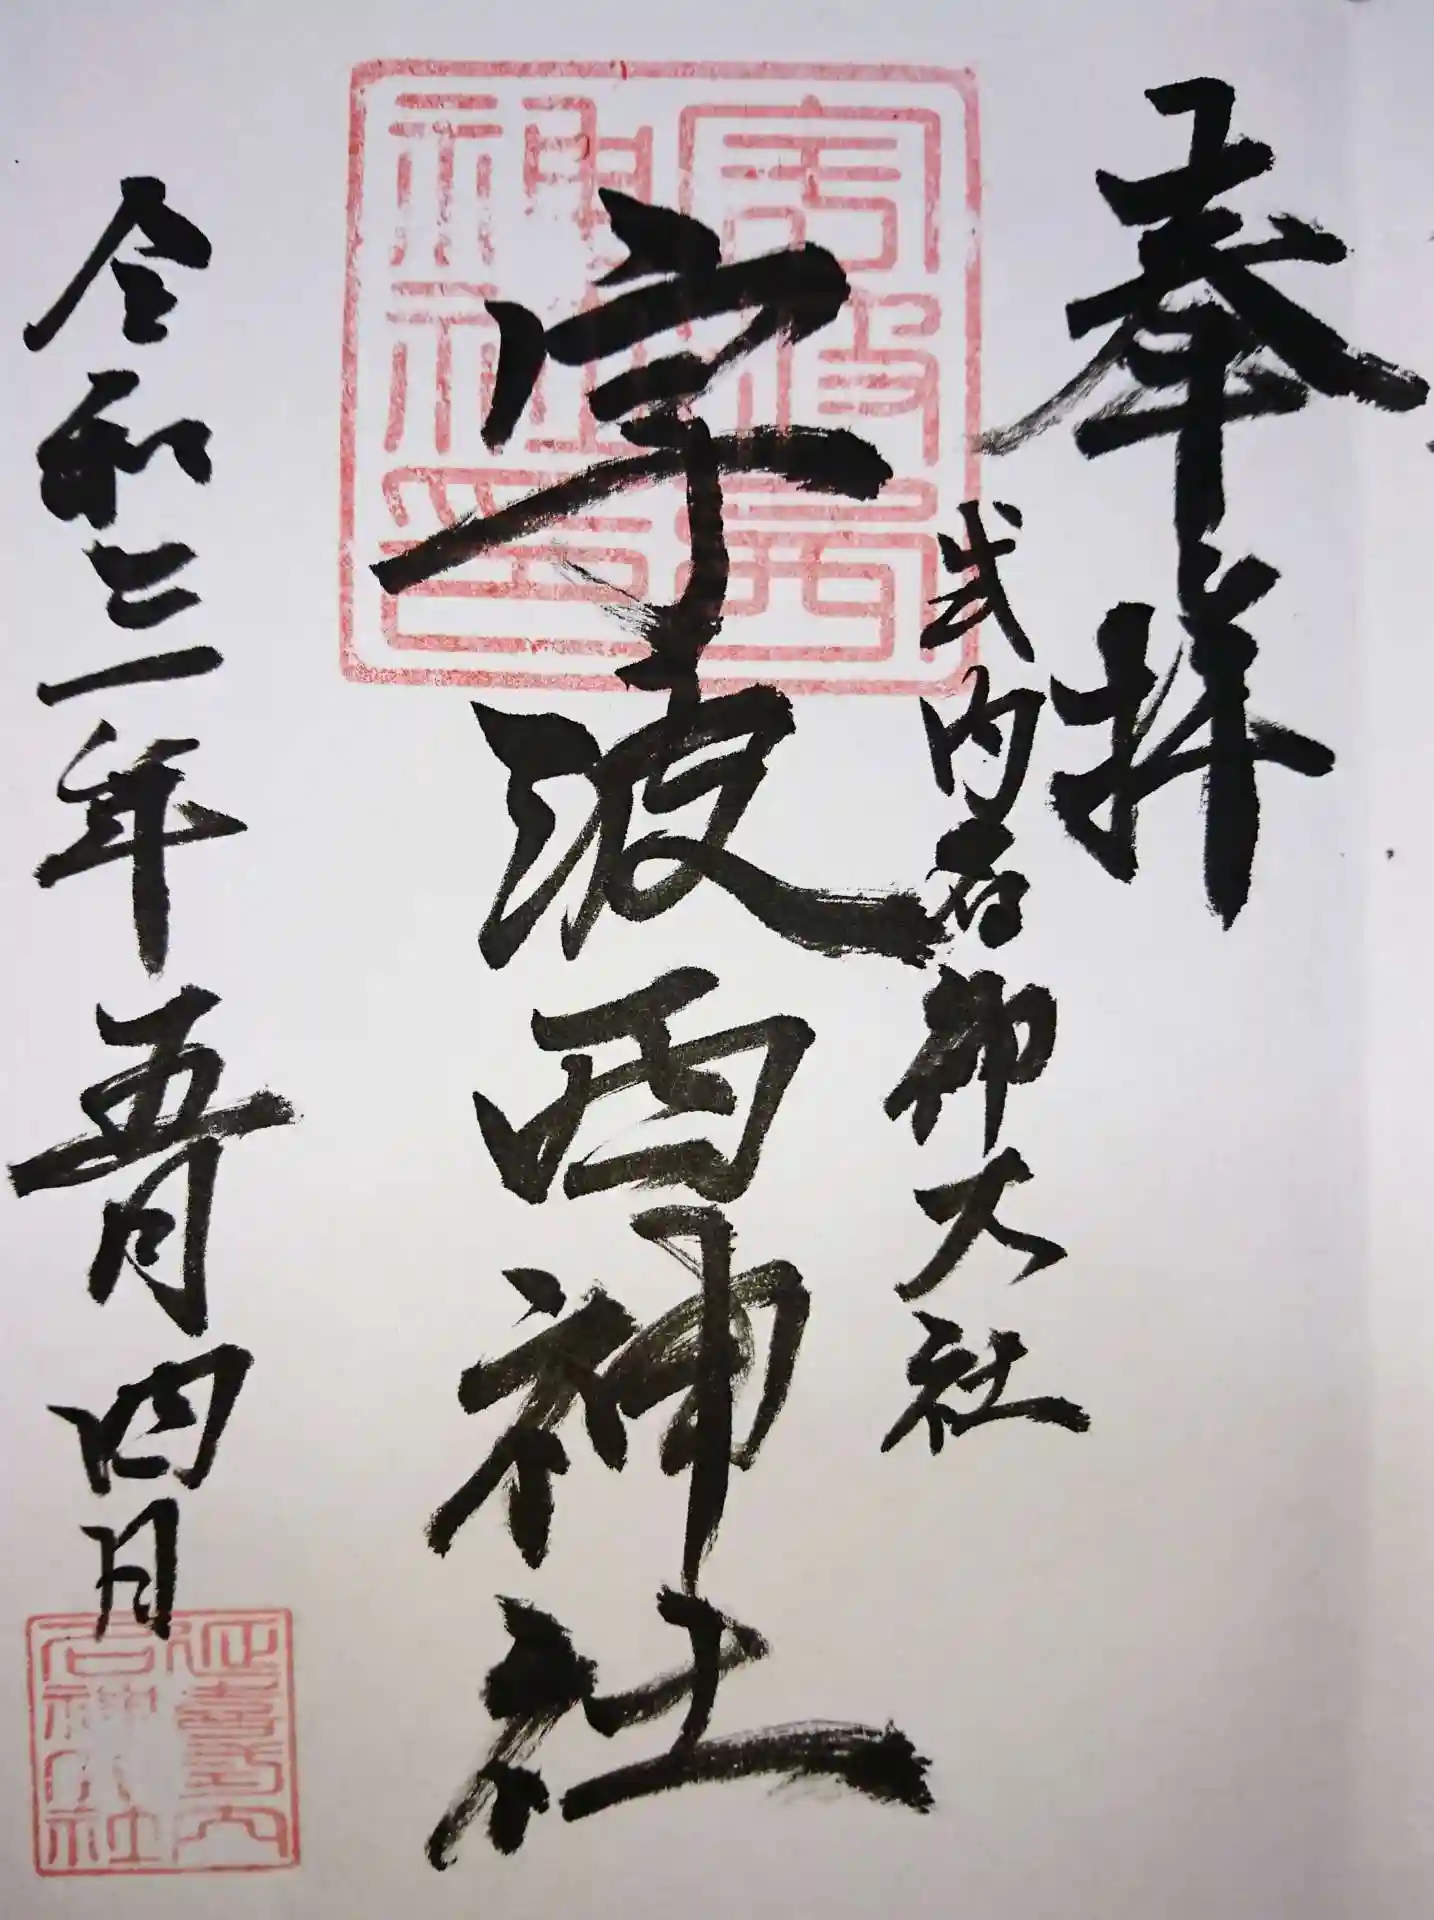 奉拝
式内名神大社
宇波西神社
宇波西神社印
令和三年五月四日
延喜式内名神大社